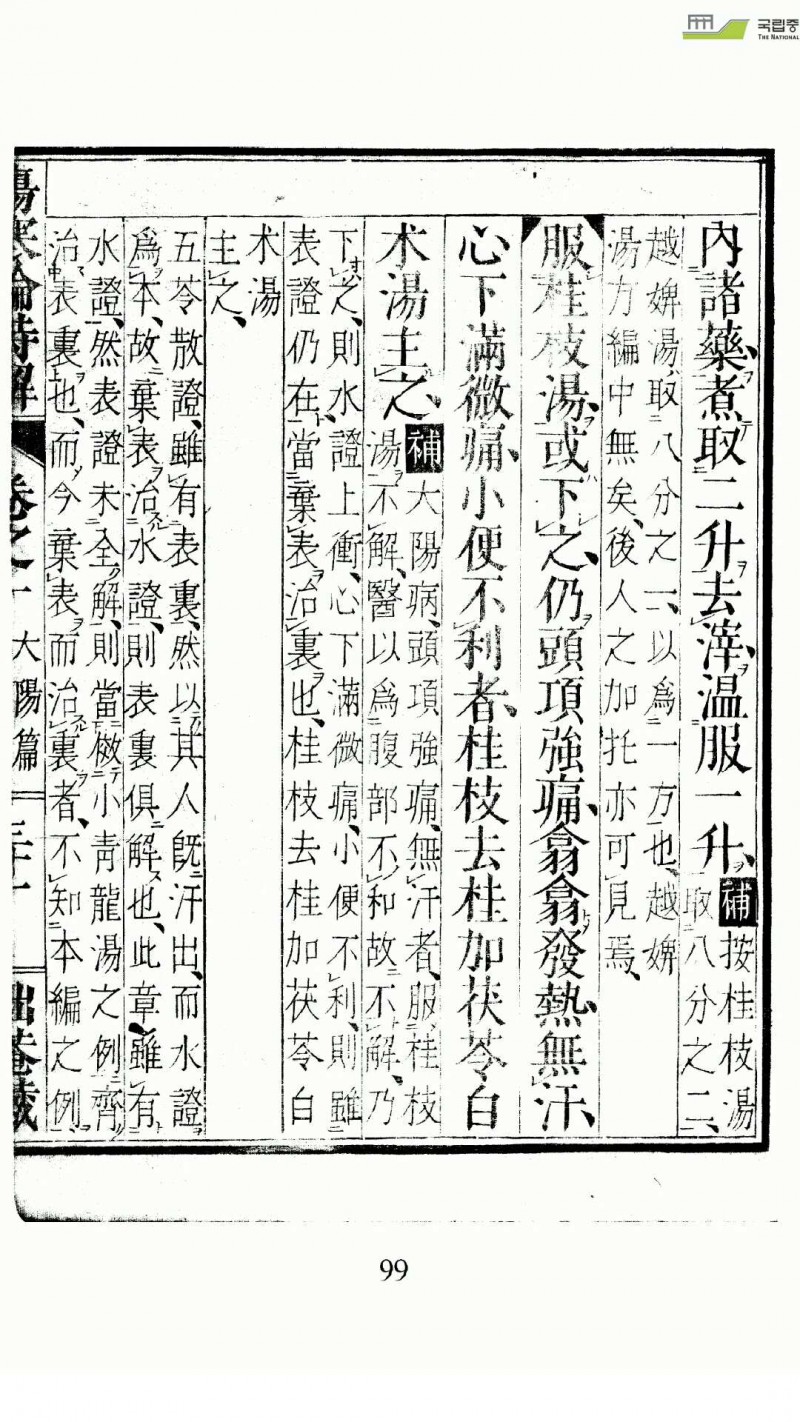 국립중
THE NATIONAL
內諸藥煮取二升去滓温服一升、補按桂枝湯
取八分之二、
越婢湯、取八分之一、以爲一方也、越婢
湯方編中無矣、後人之加托亦可見焉、
服桂枝湯、或下之、仍頭項強痛、翕翕發熱無汗、
心下滿微痛、小便不利者、桂枝去桂加茯苓白
朮湯主之、補大陽病、頭項強痛、無汗者、服桂枝
湯不解、醫以爲腹部不和故不解、乃
下之、則水證上衝、心下滿微痛、小便不利、則雖
表證仍在、當棄表治裏也、桂枝去桂加茯苓白
朮湯
主之、
五苓散證、雖有表裏、然以其人既汗出、而水證
爲本、故棄表治水證、則表裏俱解也、此章、雖有
水證、然表證未全解、則當倣小青龍湯之例、齊
治表裏也、而今棄表而治裏者、不知本編之例、
傷寒論特解 卷之一 大陽篇
99